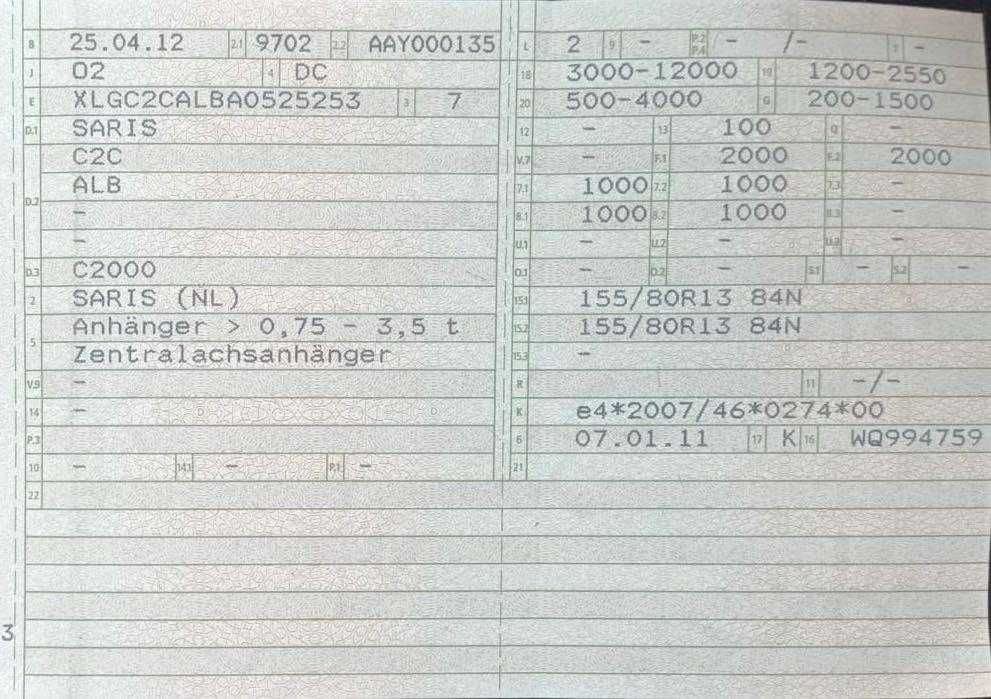 B 25.04.12 2.1 9702 2.2 AAY000135
J 02 4 DC
E XLGC2CALBA0525253 3 7
D.1 SARIS
C2C
D.2 ALB
-
-
D.3 C2000
2 SARIS (NL)
Anhänger > 0,75 - 3,5 t
5 Zentralachsanhänger
V.9 -
14 -
P.3
10 - 14.1 - P.1 -
22
L 2 9 - P.2 P.4 - /- T -
18 3000-12000 19 1200-2550
20 500-4000 G 200-1500
12 - 13 100 Q -
V.7 - F.1 2000 F.2 2000
7.1 1000 7.2 1000 7.3 -
8.1 1000 8.2 1000 8.3 -
U.1 - U.2 - U.3 -
O.1 - O.2 - S.1 - S.2 -
15.1 155/80R13 84N
15.2 155/80R13 84N
15.3 -
R 11 -/-
K e4*2007/46*0274*00
6 07.01.11 17 K 16 WQ994759
21
3